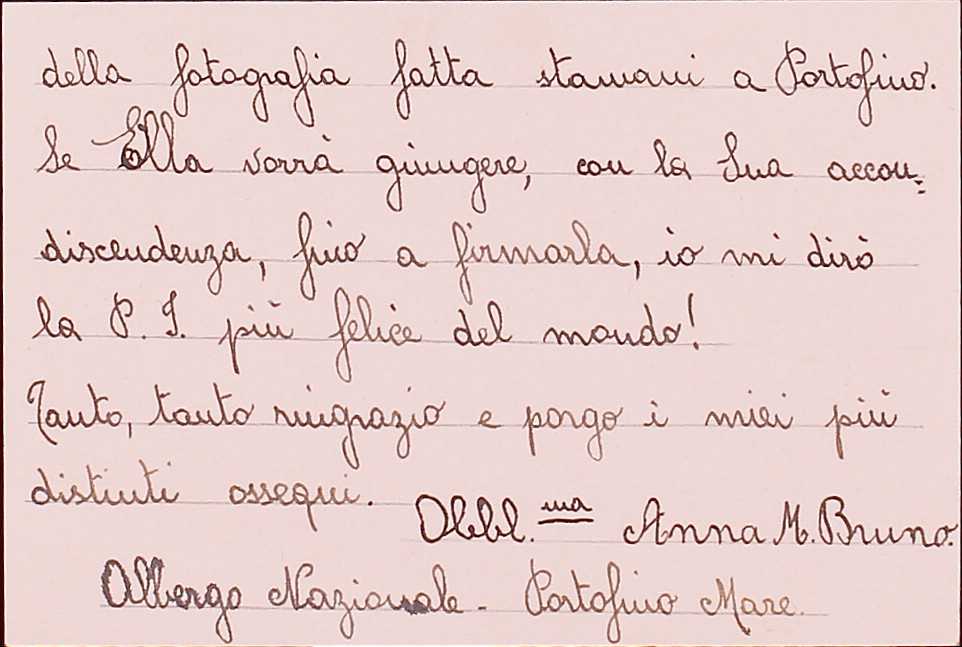 della fotografia fatta stamani a Portofino.
Se Ella vorrà giungere, con la Sua accon=
discendenza, fino a firmarla, io mi dirò
la P. I. più felice del mondo!
Tanto, tanto ringrazio e porgo i miei più
distinti ossequi.
Obbl.ma Anna M. Bruno.
Albergo Nazionale - Portofino Mare.